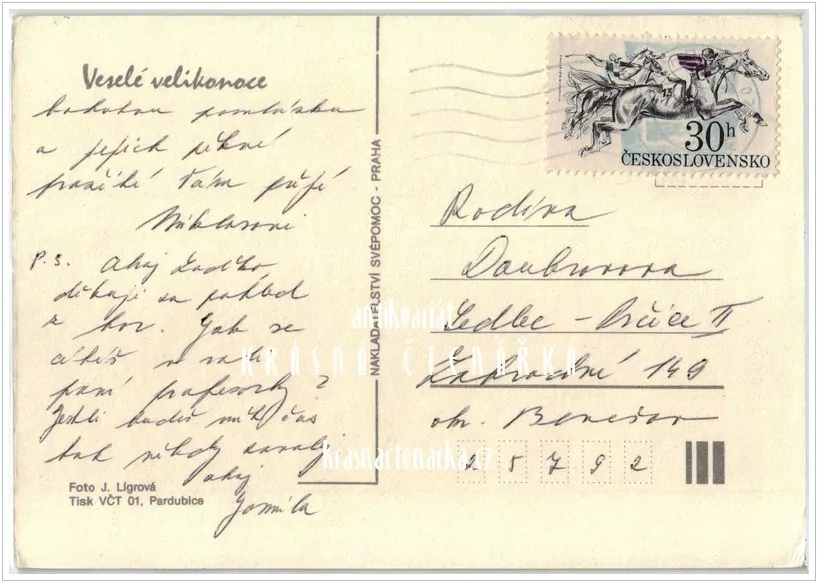 Veselé velikonoce
bohatou pomlázku
a jejich pěkné
prožití Vám přejí
Miklasovi
P.S. Ahoj
děkuji za pohled
z hor. Jak se
paní profesorky?
Jestli budeš mít čas
tak někdy zavolej
ahoj
Jarmila
Foto J. Lígrová
Tisk VČT 01, Pardubice
NAKLADATELSTVÍ SVÉPOMOC - PRAHA
30h
ČESKOSLOVENSKO
13
Rodina
Daubnerova
Sedlec - Prčice II
Zahradní 149
okr. Benešov
25792
antikvariát
KRÁSNÁ ČTENÁŘKA
krasnactenarka.cz